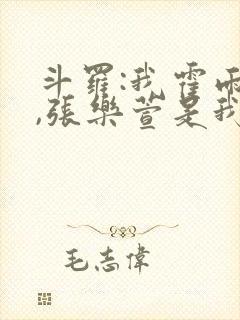 斗羅:我霍雨
,張樂萱是我
毛志偉